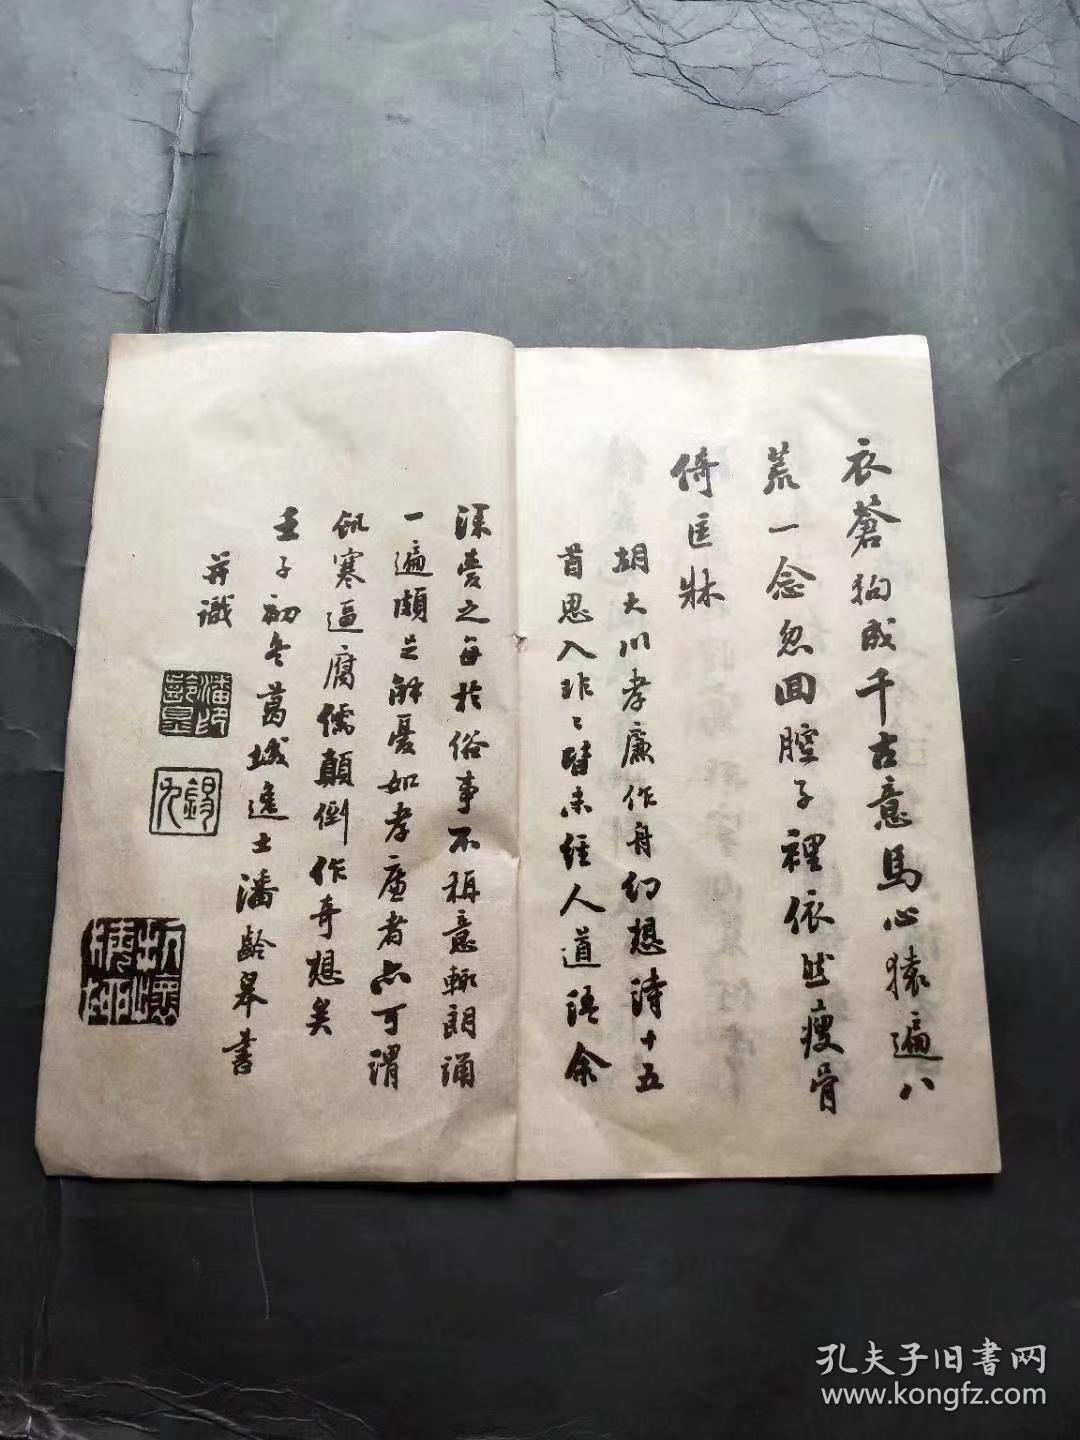 衣蒼狗成千古意馬心猿遍八
荒一念忽回腔子裡依然瘦骨
倚匡牀
胡大川孝廉作舟幻想詩十五
首思入非〻皆未經人道語余
深愛之每於俗事不稱意輒朗誦
一遍頗足解憂如孝廉者亦可謂
飢寒逼腐儒顛倒作奇想矣
壬子初冬葛城逸士潘齡皋書
并識
潘印齡皋
錫九
孔夫子旧書网
www.kongfz.com